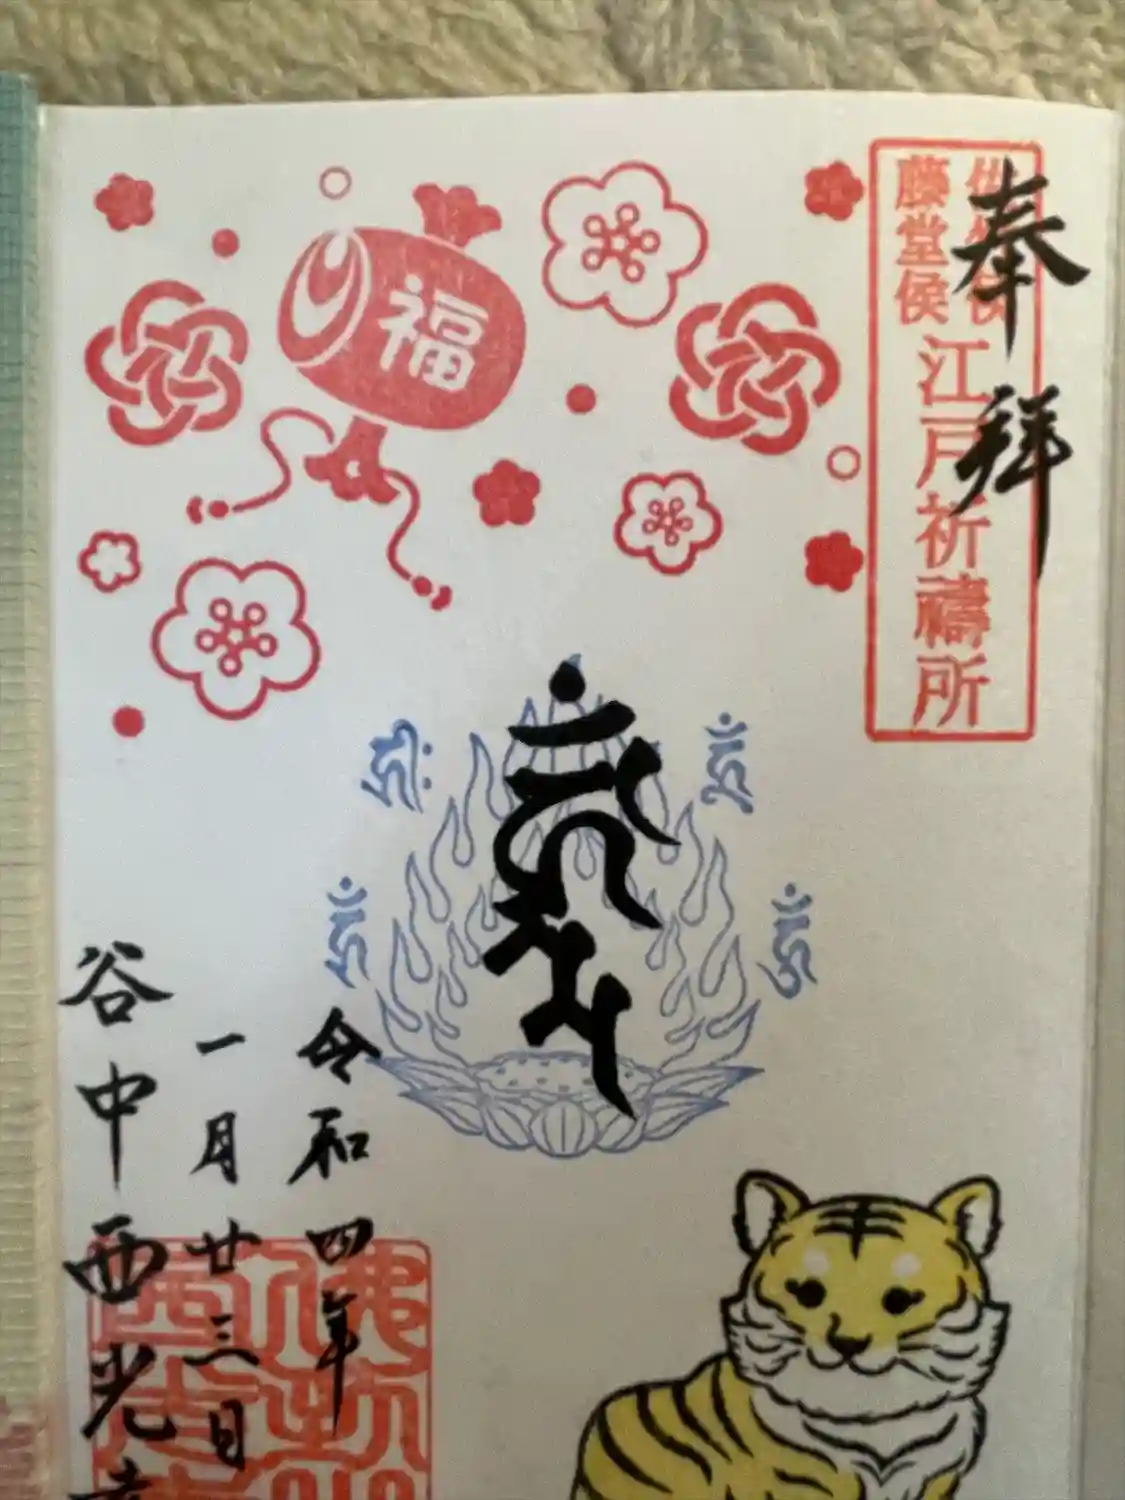 奉拜
藤堂侯
江戸祈禱所
福
令和四年
一月廿三日
谷中西光寺